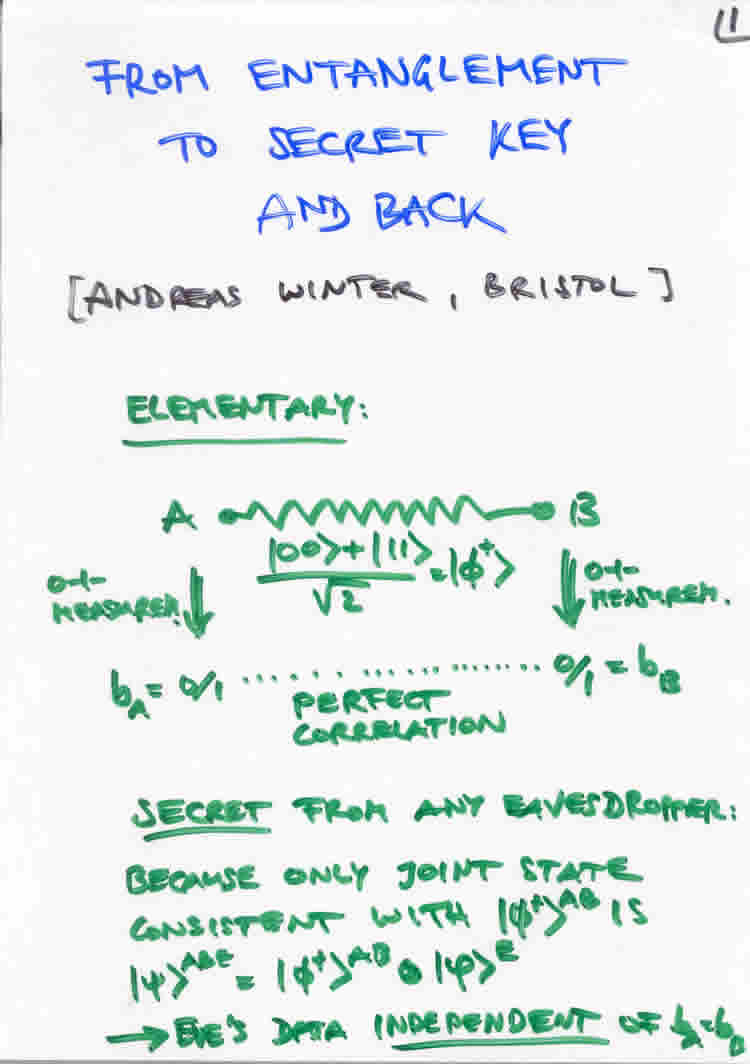 1
FROM ENTANGLEMENT
TO SECRET KEY
AND BACK
[ANDREAS WINTER, BRISTOL]
ELEMENTARY:
A B
|00>+|11> / √2 = |ϕ⁺>
0-1-
MEASUREM.
0-1-
MEASUREM.
b_A = 0/1 ............ 0/1 = b_B
PERFECT
CORRELATION
SECRET FROM ANY EAVESDROPPER:
BECAUSE ONLY JOINT STATE
CONSISTENT WITH |ϕ⁺>^AB IS
|ψ>^ABE = |ϕ⁺>^AB ⊗ |φ>^E
→ EVE'S DATA INDEPENDENT OF b_A=b_B